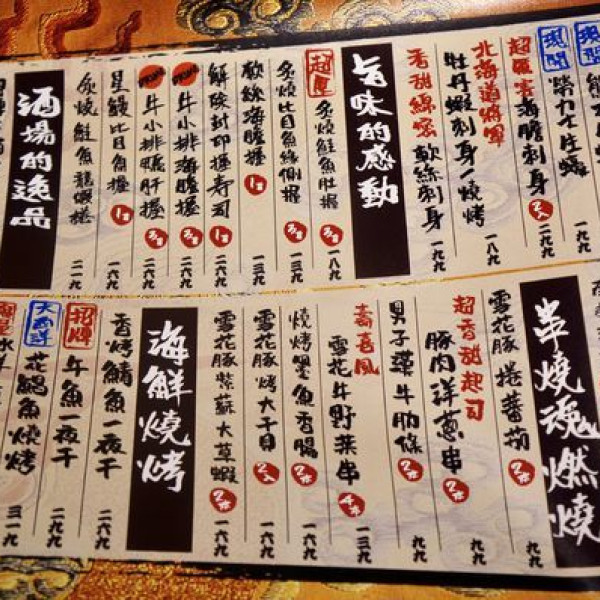 現開
勞力士生蠔
一九九
超厲害海膽刺身
2入
二九九
北海道將軍
牡丹蝦刺身一燒烤
一八九
香甜綿密
軟絲刺身
一九九
旨味的感動
超厚
炙燒鮭魚肚握
一八九
炙燒比目魚緣側握
一三九
軟絲海膽握
一三九
二六九
牛小排海膽握
二六九
牛小排鴨肝握
二六九
星鰻比目魚握
一六九
炙燒鮭魚龍蝦捲
二一九
酒場的逸品
串燒魂燃燒
雪花豚捲蕃茄
2串
九九
超香甜起司
豚肉洋蔥串
2串
九九
男子漢牛肋條
2串
九九
壽喜風
雪花牛野菜串
一三九
燒烤墨魚香腸
2串
一六九
雪花豚烤大干貝
2入
一六九
雪花豚紫蘇大草蝦
2串
一六九
海鮮燒烤
香烤鯖魚一夜干
二六九
招牌
午魚一夜干
二九九
大西洋
花鯛魚燒烤
三一九